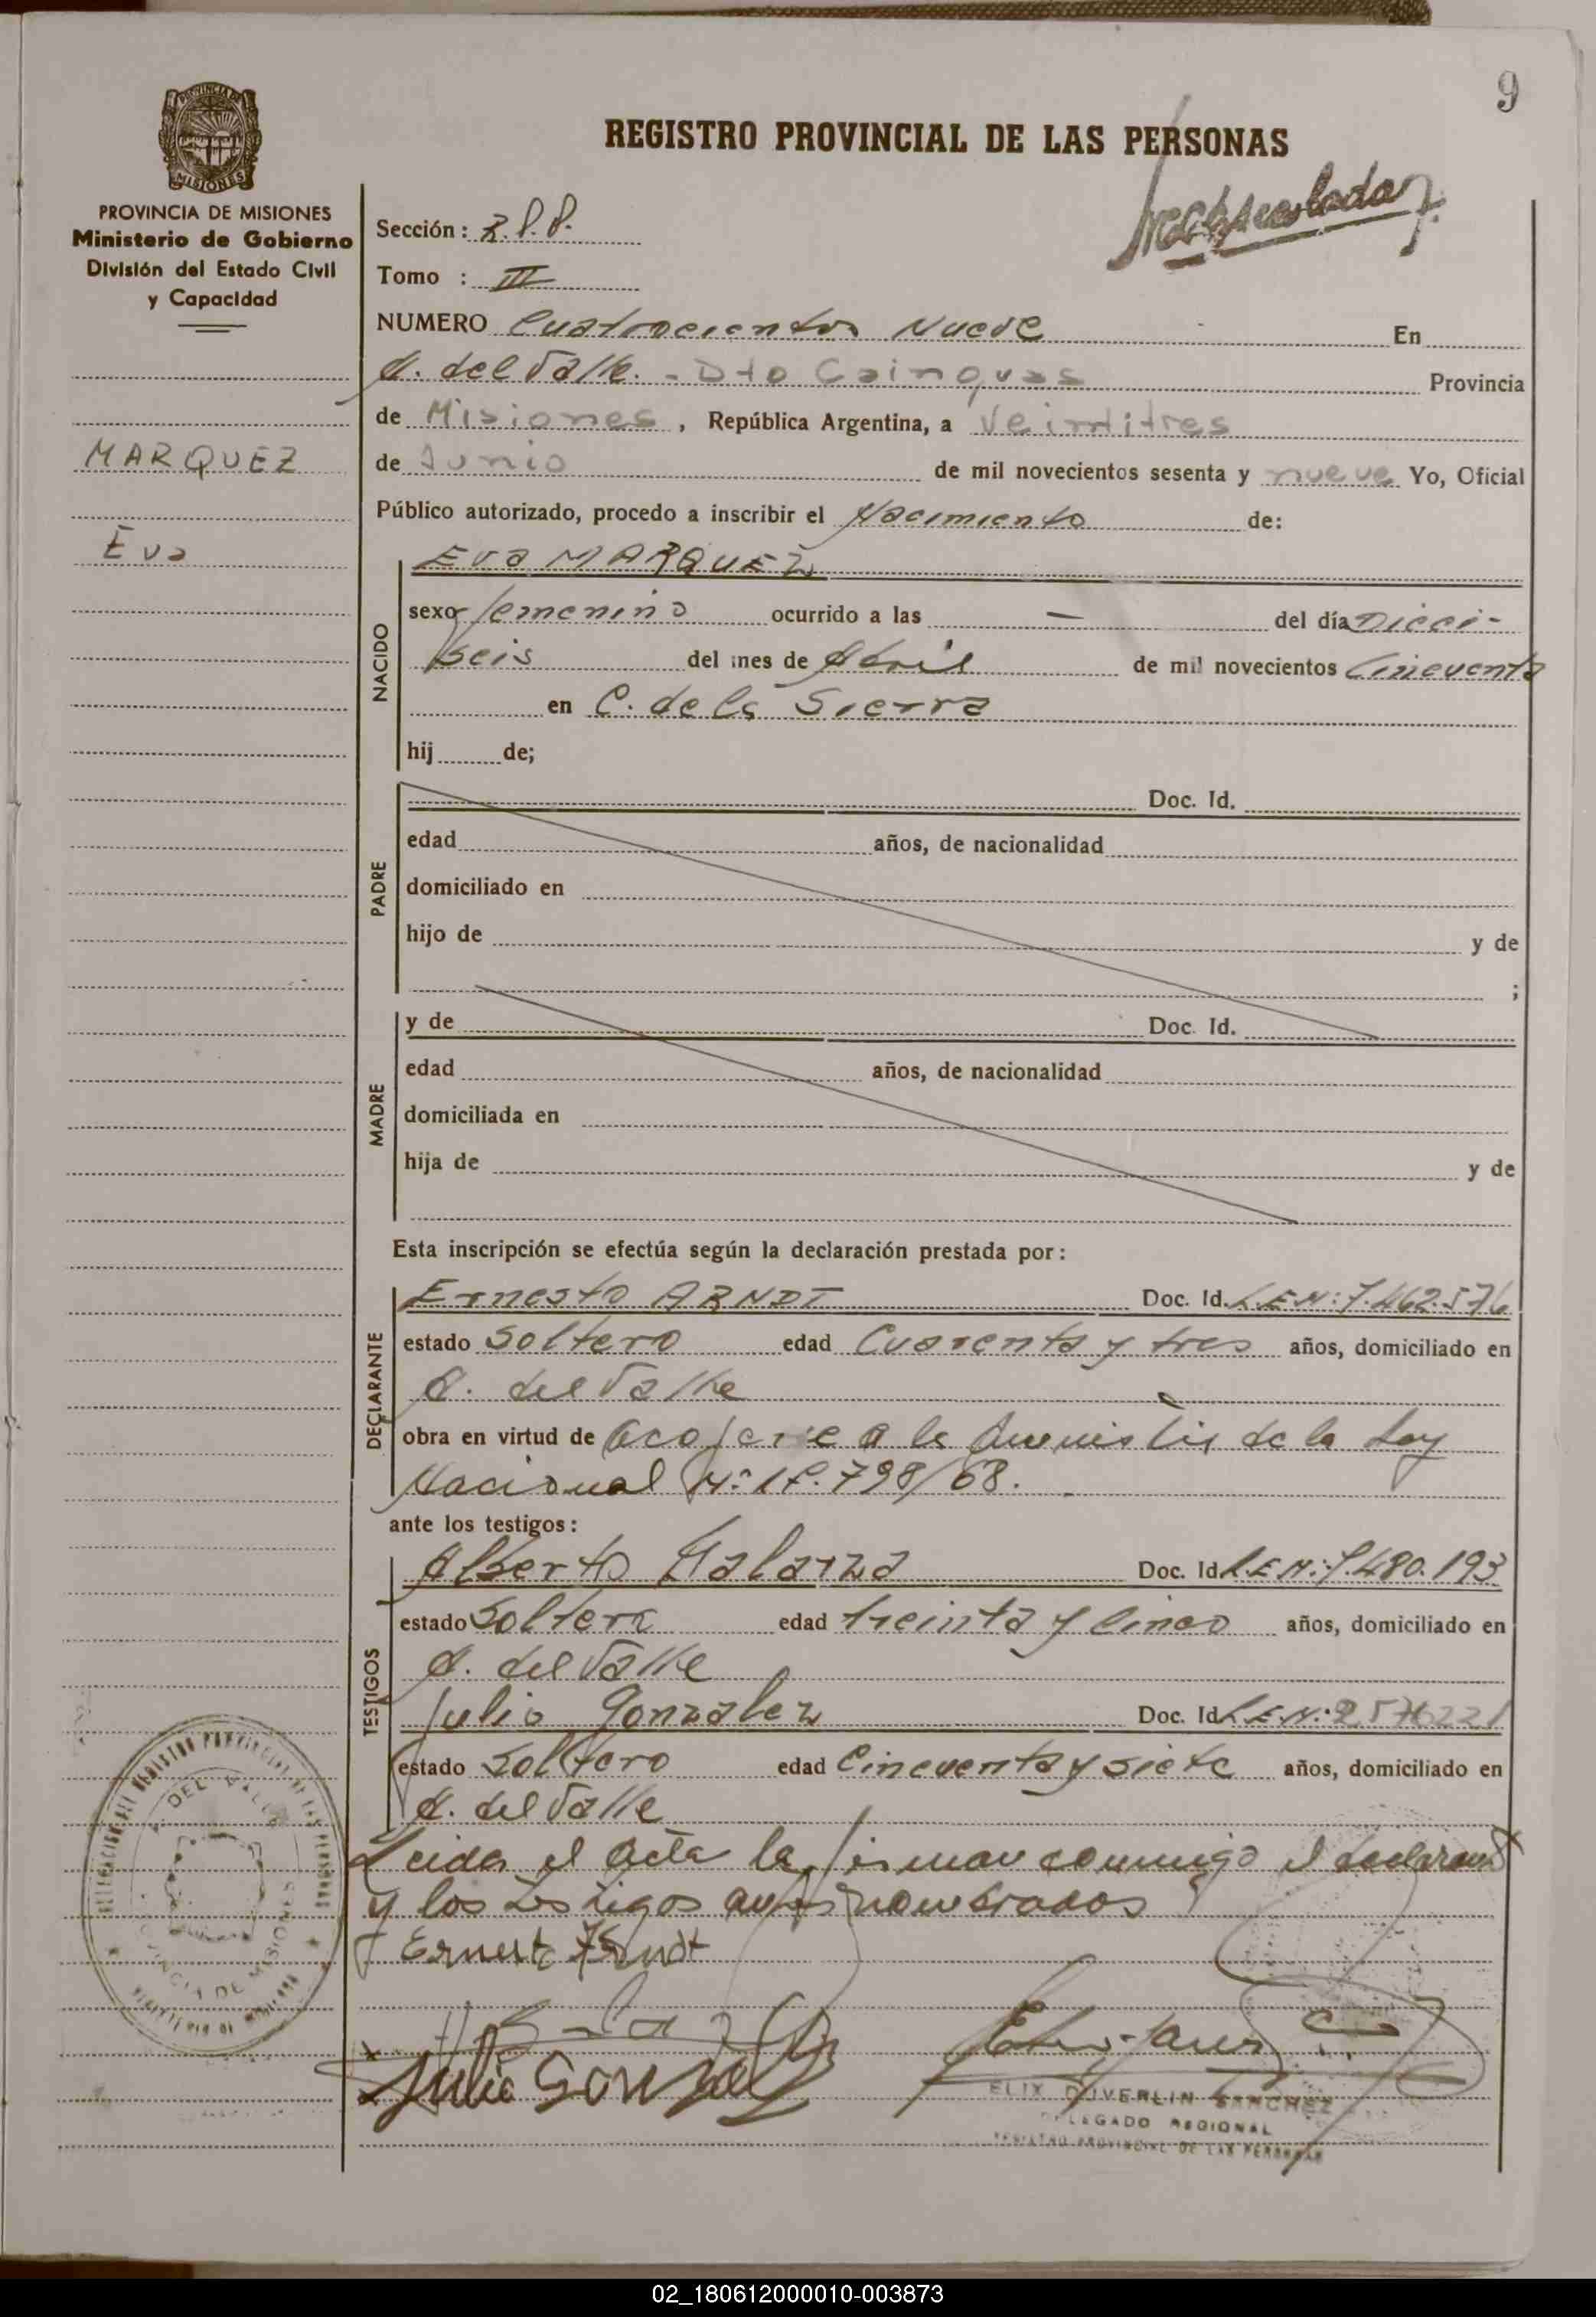 9
REGISTRO PROVINCIAL DE LAS PERSONAS
PROVINCIA DE MISIONES
Ministerio de Gobierno
División del Estado Civil
y Capacidad
MARQUEZ
Eva
Sección: R.P.P.
Tomo : III
NUMERO Cuatrocientos Nueve En
A. del Valle. - Dto Cainguas Provincia
de Misiones, República Argentina, a Veintitres
de Junio de mil novecientos sesenta y nueve Yo, Oficial
Público autorizado, procedo a inscribir el Nacimiento de:
NACIDO
Eva MARQUEZ
sexo femenino ocurrido a las — del día Dieci-
seis del mes de Abril de mil novecientos Cincuenta
en C. de la Sierra
hij de;
PADRE
Doc. Id.
edad años, de nacionalidad
domiciliado en
hijo de y de
;
MADRE
y de Doc. Id.
edad años, de nacionalidad
domiciliada en
hija de y de
Esta inscripción se efectúa según la declaración prestada por:
DECLARANTE
Ernesto ARNDT Doc. Id. L.E.N: 7.462.576
estado Soltero edad Cuarenta y tres años, domiciliado en
A. del Valle
obra en virtud de acojerse a la Amnistia de la Ley
Nacional Nº 17.798/68.
ante los testigos:
TESTIGOS
Alberto Galarza Doc. Id L.E.N: 7.480.193
estado Soltero edad treinta y Cinco años, domiciliado en
A. del Valle
Julio Gonzalez Doc. Id L.E.N: 2576221
estado Soltero edad Cincuenta y siete años, domiciliado en
A. del Valle
Leida el acta la firman conmigo el declarante
y los testigos antes nombrados
Ernesto Arndt
Julio Gonzalez
DUVERLIN SANCHEZ
DELEGADO REGIONAL
REGISTRO PROVINCIAL DE LAS PERSONAS
A. DEL VALLE
PROVINCIA DE MISIONES
02_180612000010-003873